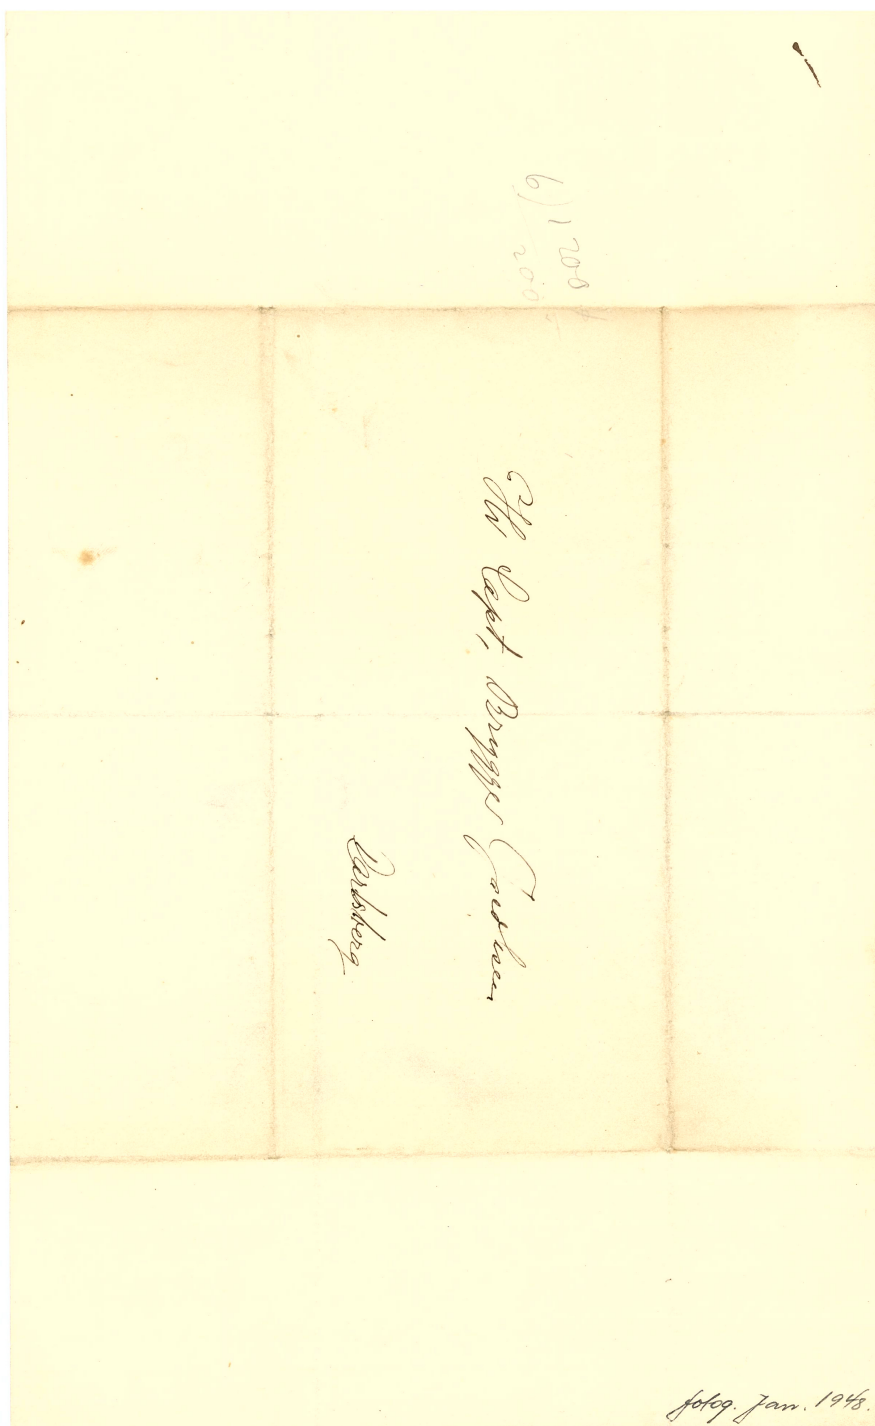 6) 1200
200
Hr Capt, Brygger Jacobsen
Carlsberg
fotog. Jan. 1948.